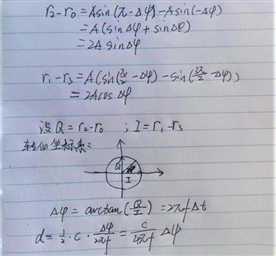 r₂-r₀ = Asin(π-Δφ)-Asin(-Δφ)
= A(sinΔφ + sinΔθ)
= 2A sinΔφ
r₁-r₃ = A(sin(π/2-Δφ) - sin(3π/2-Δφ))
= 2Acos Δφ
设 Q = r₂-r₀ ; I = r₁-r₃
坐标系:
Q
I
Δφ = arctan(Q/I) = 2πfΔt
d = 1/2 · c · Δφ/2πf = c/4πf Δφ